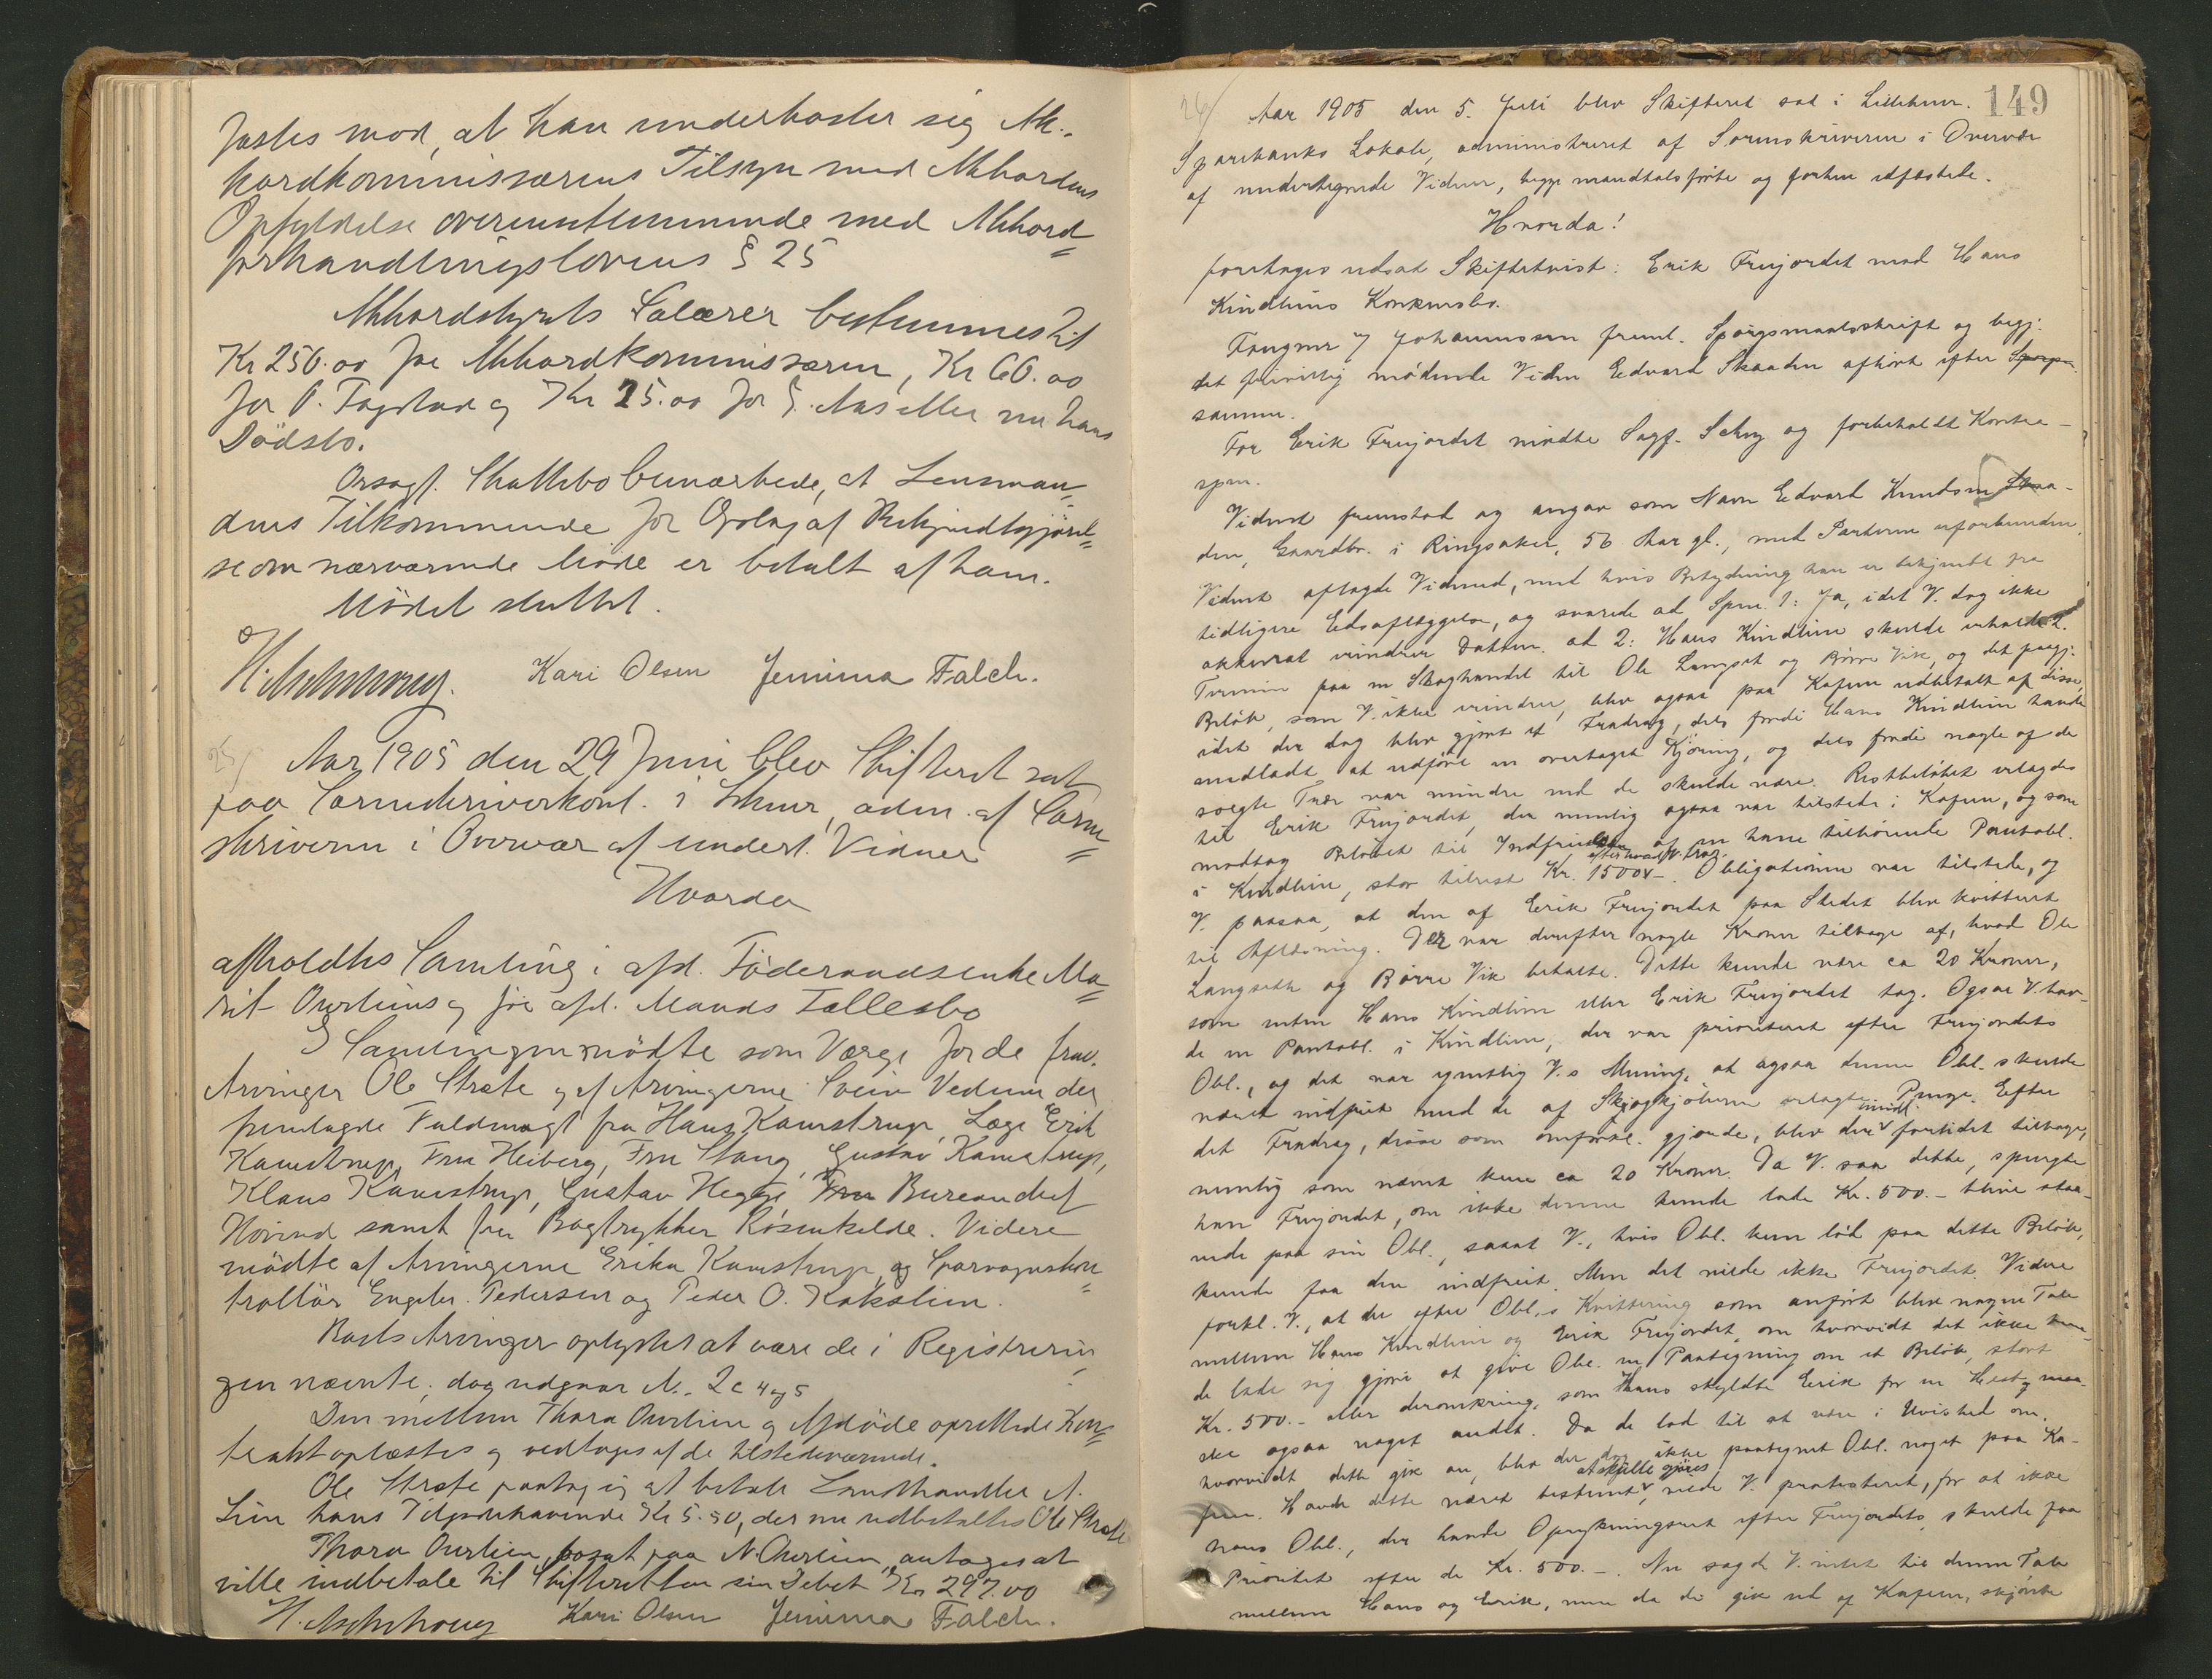 fæstes mod, at han underkaster sig Ak-
kordkommissærens Tilsyn med Akkordens
Opfyldelse overensstemmende med Akkord=
forhandlingslovens § 25
Akkordstyrets Salærer bestemmes til
Kr 250.00 for Akkordkommissæren, Kr 60.00
for P. Fagstad og Kr 25.00 for S. Aas eller nu hans
Dödsbo.
Orsagf. Skattebo bemærkede, at Lensman=
dens Tilkommende for Opslag af Bekjendtgjørel=
se om nærværende Møde er betalt af ham.
Mödet sluttet.
H. Aschehoug. Kari Olsen Jemima Falch.
25/ Aar 1905 den 29 Juni blev Skifteret sat
paa Sorenskriverkont. i Lhmr, adm. af Soren=
skriveren i Overvær af undert. Vidner
Hvorda
afholdtes Samling i afd. Föderaadsenke Ma=
rit Ourliens og før afd. Mands Fællesbo
I Samlingen mödte som Værge for de frav.
Arvinger Ole Stræte og af Arvingerne Svein Vedum der
fremlagde Fuldmagt fra Hans Kamstrup, Læge Erik
Kamstrup, Fru Heiberg, Fru Stang, Gustav Kamstrup,
Klaus Kamstrup, Gustav Hegge, Fru Bureauchef
Hovind samt fru Bogtrykker Rosenkilde. Videre
mödte af Arvingerne Erika Kamstrup, og Sporvognskon=
trollör Engebr. Pedersen og Peder O. Kokslien.
Boets Arvinger oplystes at være de i Registrerin-
gen nævnte; dog udgaar N. 2c 4 og 5
Den mellem Thora Ourlien og Afdöde oprettede Kon=
trakt oplæstes og vedtages af de tilstedeværende.
Ole Stræte paatog sig at betale Landhandler A.
Lien hans Tilgodehavende Kr 5.50, der nu udbetaltes Ole Stræte
Thora Ourlien, bosat paa N. Ourlien, antoges at
ville indbetale til Skifteretten sin Debet Kr 297.00
H. Aschehoug Kari Olsen Jemima Falch.
149
26/ Aar 1905 den 5. Juli blev Skifteret sat i Lillehmr.
Sparebanks Lokale, administreret af Sorenskriveren i Overvær
af undertegnede Vidner, begge mandtalsførte og forhen edfæstede.
Hvorda!
foretages udsat Skiftetvist: Erik Frujordet mod Hans
Kindliens Konkursbo.
Fougner og Johannessen freml. Spørgsmaalsskrift og begj.
det frivillig mødende Vidne Edvard Skaaden afhørt efter Spørgs
samme.
For Erik Frujordet mødte Sagf. Schøy og forbeholdt Kontra-
spm.
Vidnet fremstod og angav som Navn Edvard Knudsen Skaa-
den, Gaardbr. i Ringsaker, 56 Aar gl., med Parterne uforbunden.
Vidnet aflagde Vidneed, med hvis Betydning han er bekjendt fra
tidligere Edsaflæggelse, og svarede ad Spm. 1: Ja, idet V. dog ikke
akkurat erindrer Datten. ad 2: Hans Kindlien skulde erholde 2.
Termin paa en Skoghandel til Ole Langset og Børre Vik, og det paagj.
Beløb, som V. ikke erindrer, blev ogsaa paa Kafeen udbetalt af disse,
idet der dog blev gjort et Fradrag, dels fordi Hans Kindlien havde
undladt at udføre en overtaget Kjøring, og dels fordi nogle af de
solgte Trær var mindre end de skulde være. Restbeløbet erlagdes
til Erik Frujordet, der nemlig ogsaa var tilstede i Kafeen, og som
modtog Beløbet til Indfrielse af en ham tilhørende Pantobl.
i Kindlien, stor tilrest Kr. 1500 efter hvad V. tror. Obligationen var tilstede, og
V. paasaa, at den af Erik Frujordet paa Stedet blev kvitteret
til Aflæsning. Der var derefter nogle Kroner tilbage af, hvad Ole
Langseth og Børre Vik betalte. Dette kunde være ca 20 Kroner,
som enten Hans Kindlien eller Erik Frujordet tog. Ogsaa V. hav-
de en Pantobl. i Kindlien, der var prioriteret efter Frujordets
Obl., og det var egentlig V.s Mening, at ogsaa denne Obl. skulde
været indfriet med de af Skogkjøberne erlagte Penge. Efter
det Fradrag, disse som omforkl. gjorde, blev der imidl. forlidet tilbage,
nemlig som nævnt kun ca 20 Kroner. Da V. saa dette, spurgte
han Frujordet, om ikke denne kunde lade Kr. 500.- blive staa-
ende paa sin Obl., saaat V., hvis Obl. kun lød paa dette Beløb,
kunde faa den indfriet. Men det vilde ikke Frujordet. Videre
forkl. V., at der efter Obl.s Kvittering som anført blev nogen Tale
mellem Hans Kindlien og Erik Frujordet, om hvorvidt det ikke kun-
de lade sig gjøre at give Obl. en Paategning om et Beløb, stort
Kr. 500.- eller deromkring, som Hans skyldte Erik for en Hest og maa-
ske ogsaa noget andet. Da de lod til at være i Uvished om,
hvorvidt dette gik an, blev der dog ikke paategnet Obl. noget paa Ka-
feen. Havde dette været bestemt at skulle gjøres, vilde V. protesteret, for at ikke
hans Obl., der havde Oprykningsret efter Frujordets, skulde faa
Prioritet efter de Kr. 500.-. Nu sagde V. intet til denne Tale
mellem Hans og Erik, men da de gik ud af Kafeen, skjønte